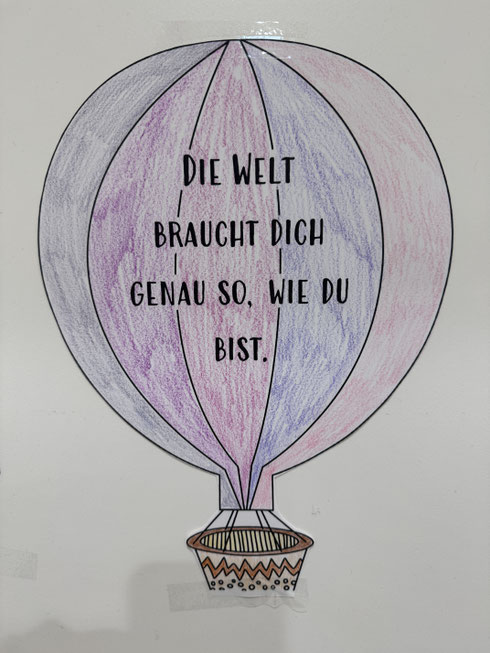 Die Welt
braucht dich
genau so, wie du
bist.